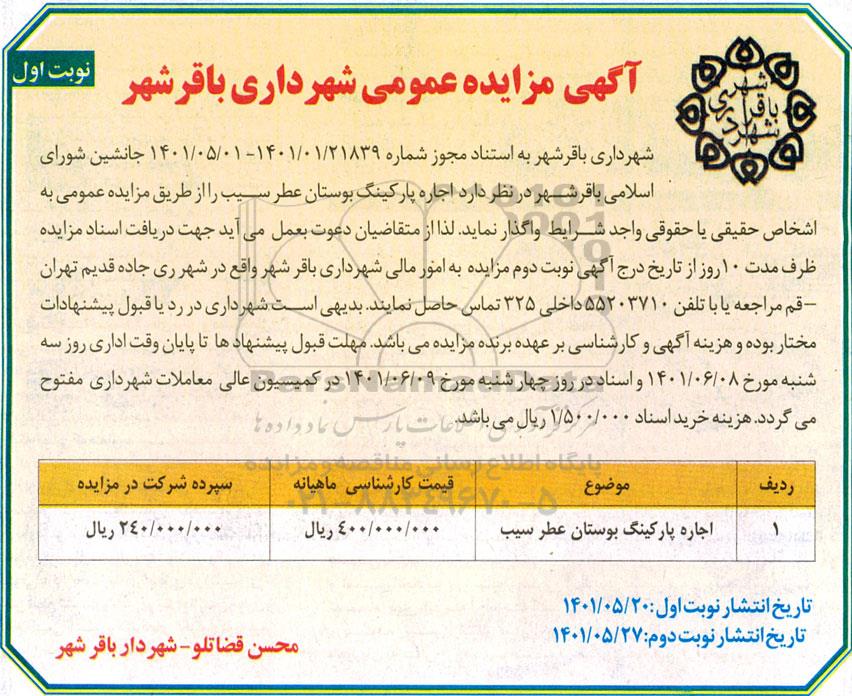 نوبت اول
آگهی مزایده عمومی شهرداری باقرشهر
شهرداری باقرشهر
شهرداری باقرشهر به استناد مجوز شماره ۱۴۰۱/۰۱/۲۱۸۳۹- ۱۴۰۱/۰۵/۰۱ جانشین شورای
اسلامی باقرشهر در نظر دارد اجاره پارکینگ بوستان عطر سیب را از طریق مزایده عمومی به
اشخاص حقیقی یا حقوقی واجد شرایط واگذار نماید. لذا از متقاضیان دعوت بعمل می آید جهت دریافت اسناد مزایده
ظرف مدت ۱۰ روز از تاریخ درج آگهی نوبت دوم مزایده به امور مالی شهرداری باقر شهر واقع در شهر ری جاده قدیم تهران
-قم مراجعه یا با تلفن ۵۵۲۰۳۷۱۰ داخلی ۳۲۵ تماس حاصل نمایند. بدیهی است شهرداری در رد یا قبول پیشنهادات
مختار بوده و هزینه آگهی و کارشناسی بر عهده برنده مزایده می باشد. مهلت قبول پیشنهاد ها تا پایان وقت اداری روز سه
شنبه مورخ ۱۴۰۱/۰۶/۰۸ و اسناد در روز چهار شنبه مورخ ۱۴۰۱/۰۶/۰۹ در کمیسیون عالی معاملات شهرداری مفتوح
می گردد. هزینه خرید اسناد ۱/۵۰۰/۰۰۰ ریال می باشد.
ParsNamadData
مرکز فرآوری اطلاعات پارس نماد داده ها
پایگاه اطلاع رسانی مناقصه و مزایده
۰۲۱-۸۸۳۴۹۶۷۰-۵
ردیف موضوع قیمت کارشناسی ماهیانه سپرده شرکت در مزایده
۱ اجاره پارکینگ بوستان عطر سیب ۴۰۰/۰۰۰/۰۰۰ ریال ۲۴۰/۰۰۰/۰۰۰ ریال
تاریخ انتشار نوبت اول: ۱۴۰۱/۰۵/۲۰
تاریخ انتشار نوبت دوم: ۱۴۰۱/۰۵/۲۷
محسن قضاتلو - شهردار باقر شهر